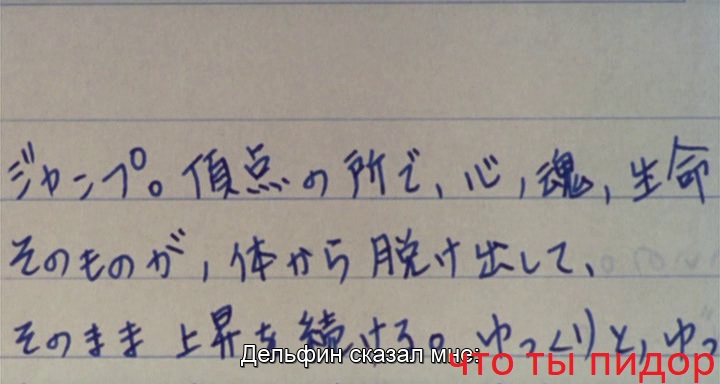 ジャンプ。頂点の所で、心、魂、生命
そのものが、体から脱け出して、
そのまま上昇を続ける。ゆっくりと、ゆっ
Дельфин сказал мне:
что ты пидор